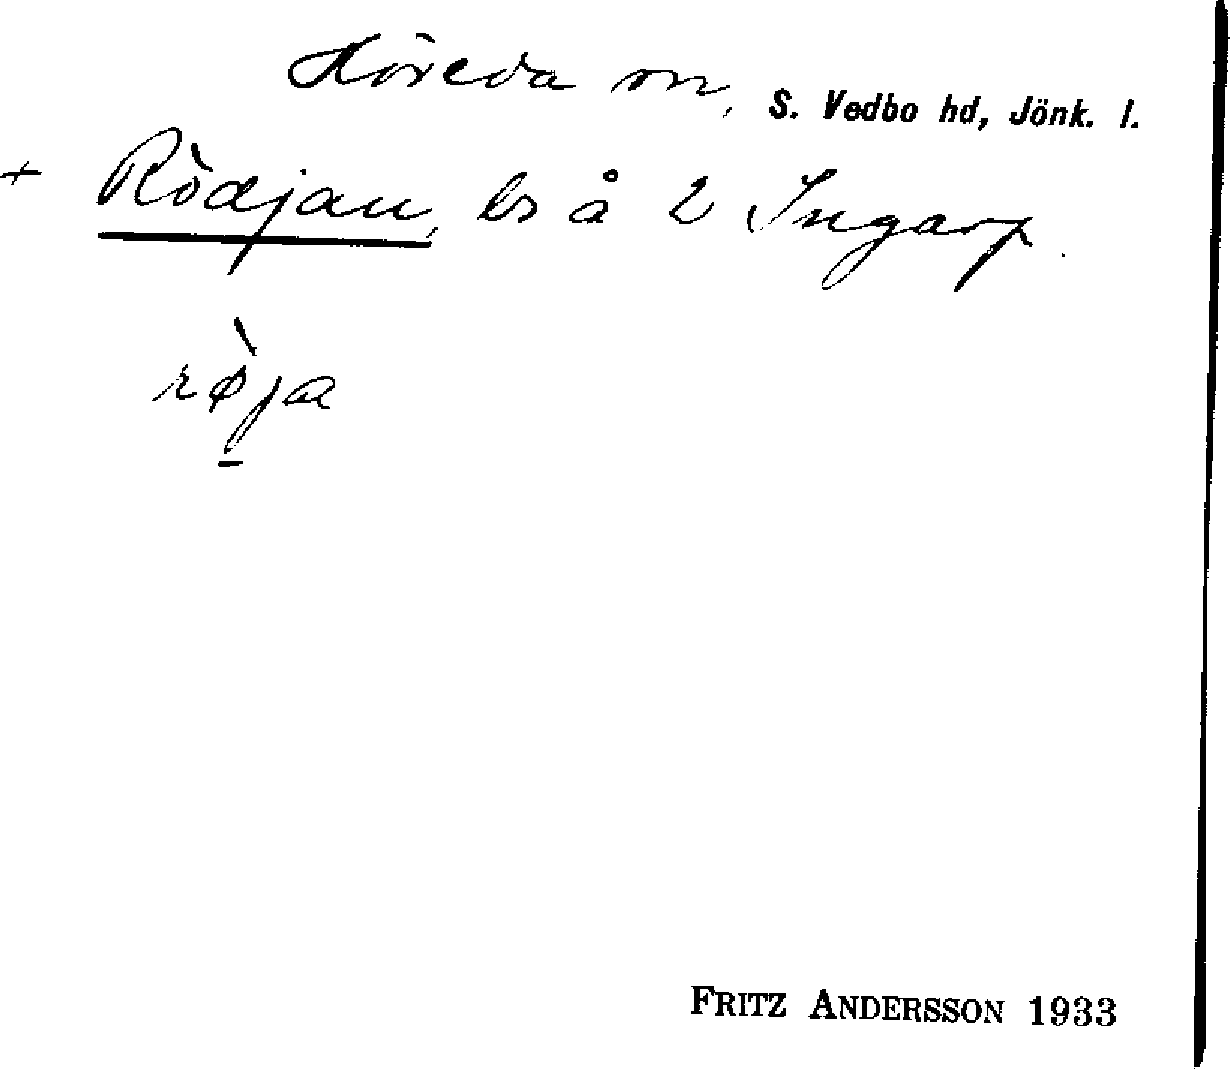 Höreda sn, S. Vedbo hd, Jönk. l.
+ Rödjan, ls å 2 Ingarp.
rø̀ja
Fritz Andersson 1933